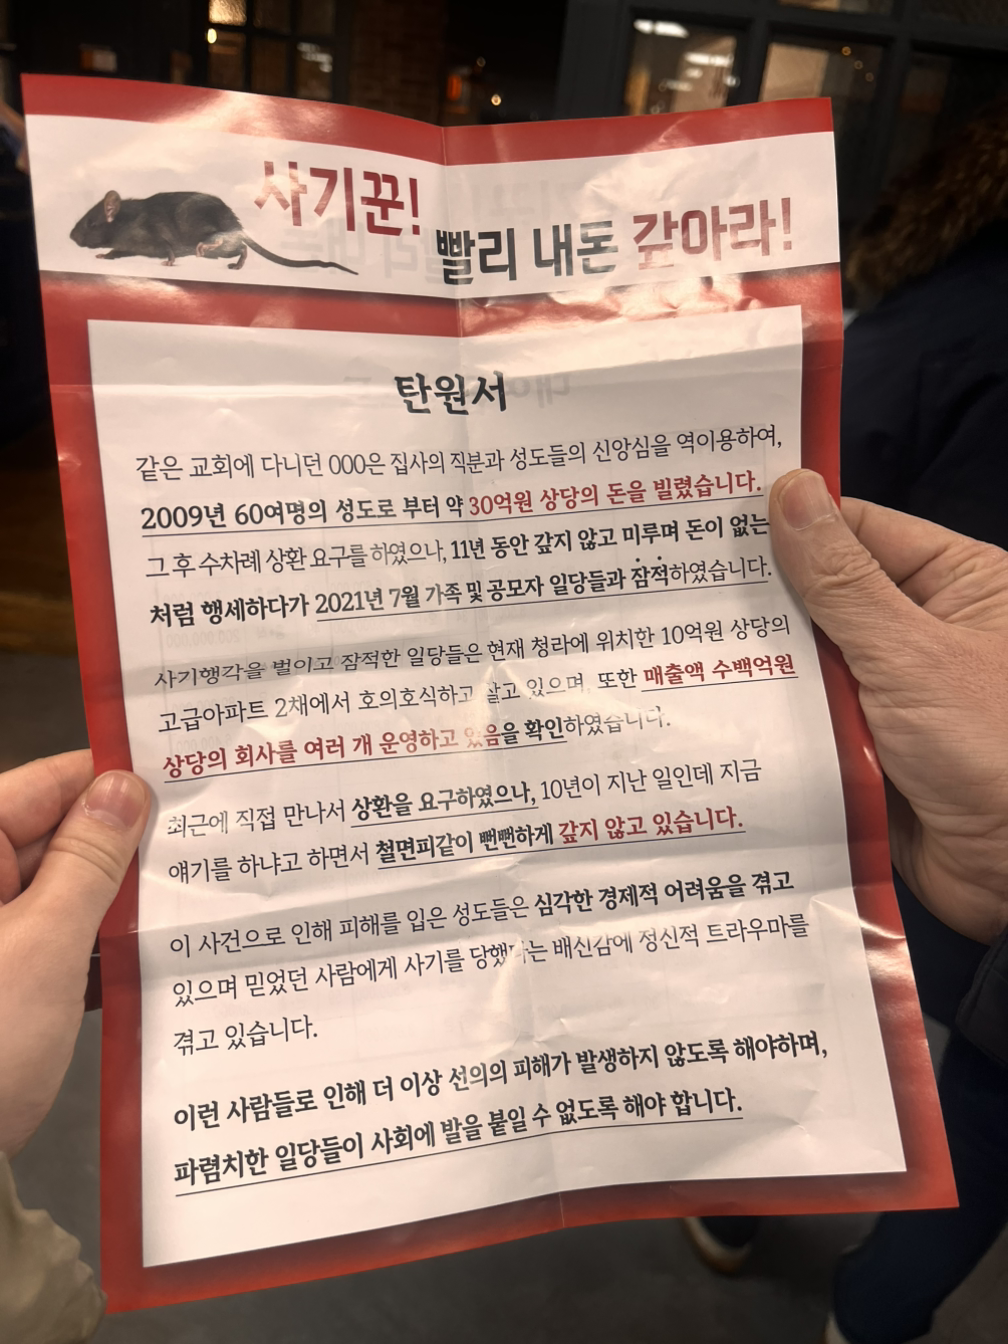 사기꾼!
빨리 내돈 갚아라!
탄원서
같은 교회에 다니던 000은 집사의 직분과 성도들의 신앙심을 역이용하여,
2009년 60여명의 성도로 부터 약 30억원 상당의 돈을 빌렸습니다.
그 후 수차례 상환 요구를 하였으나, 11년 동안 갚지 않고 미루며 돈이 없는
처럼 행세하다가 2021년 7월 가족 및 공모자 일당들과 잠적하였습니다.
사기행각을 벌이고 잠적한 일당들은 현재 청라에 위치한 10억원 상당의
고급아파트 2채에서 호의호식하고 살고 있으며, 또한 매출액 수백억원
상당의 회사를 여러 개 운영하고 있음을 확인하였습니다.
최근에 직접 만나서 상환을 요구하였으나, 10년이 지난 일인데 지금
얘기를 하냐고 하면서 철면피같이 뻔뻔하게 갚지 않고 있습니다.
이 사건으로 인해 피해를 입은 성도들은 심각한 경제적 어려움을 겪고
있으며 믿었던 사람에게 사기를 당했다는 배신감에 정신적 트라우마를
겪고 있습니다.
이런 사람들로 인해 더 이상 선의의 피해가 발생하지 않도록 해야하며,
파렴치한 일당들이 사회에 발을 붙일 수 없도록 해야 합니다.